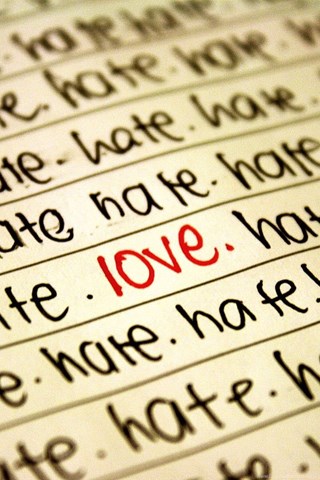 hate hate. h
e. hate. hate. h
ate. hate. hate.
ate. hate. hate
ate. love. hat
te. hate. hate!
e. hate. hate. h
ate. hate. h